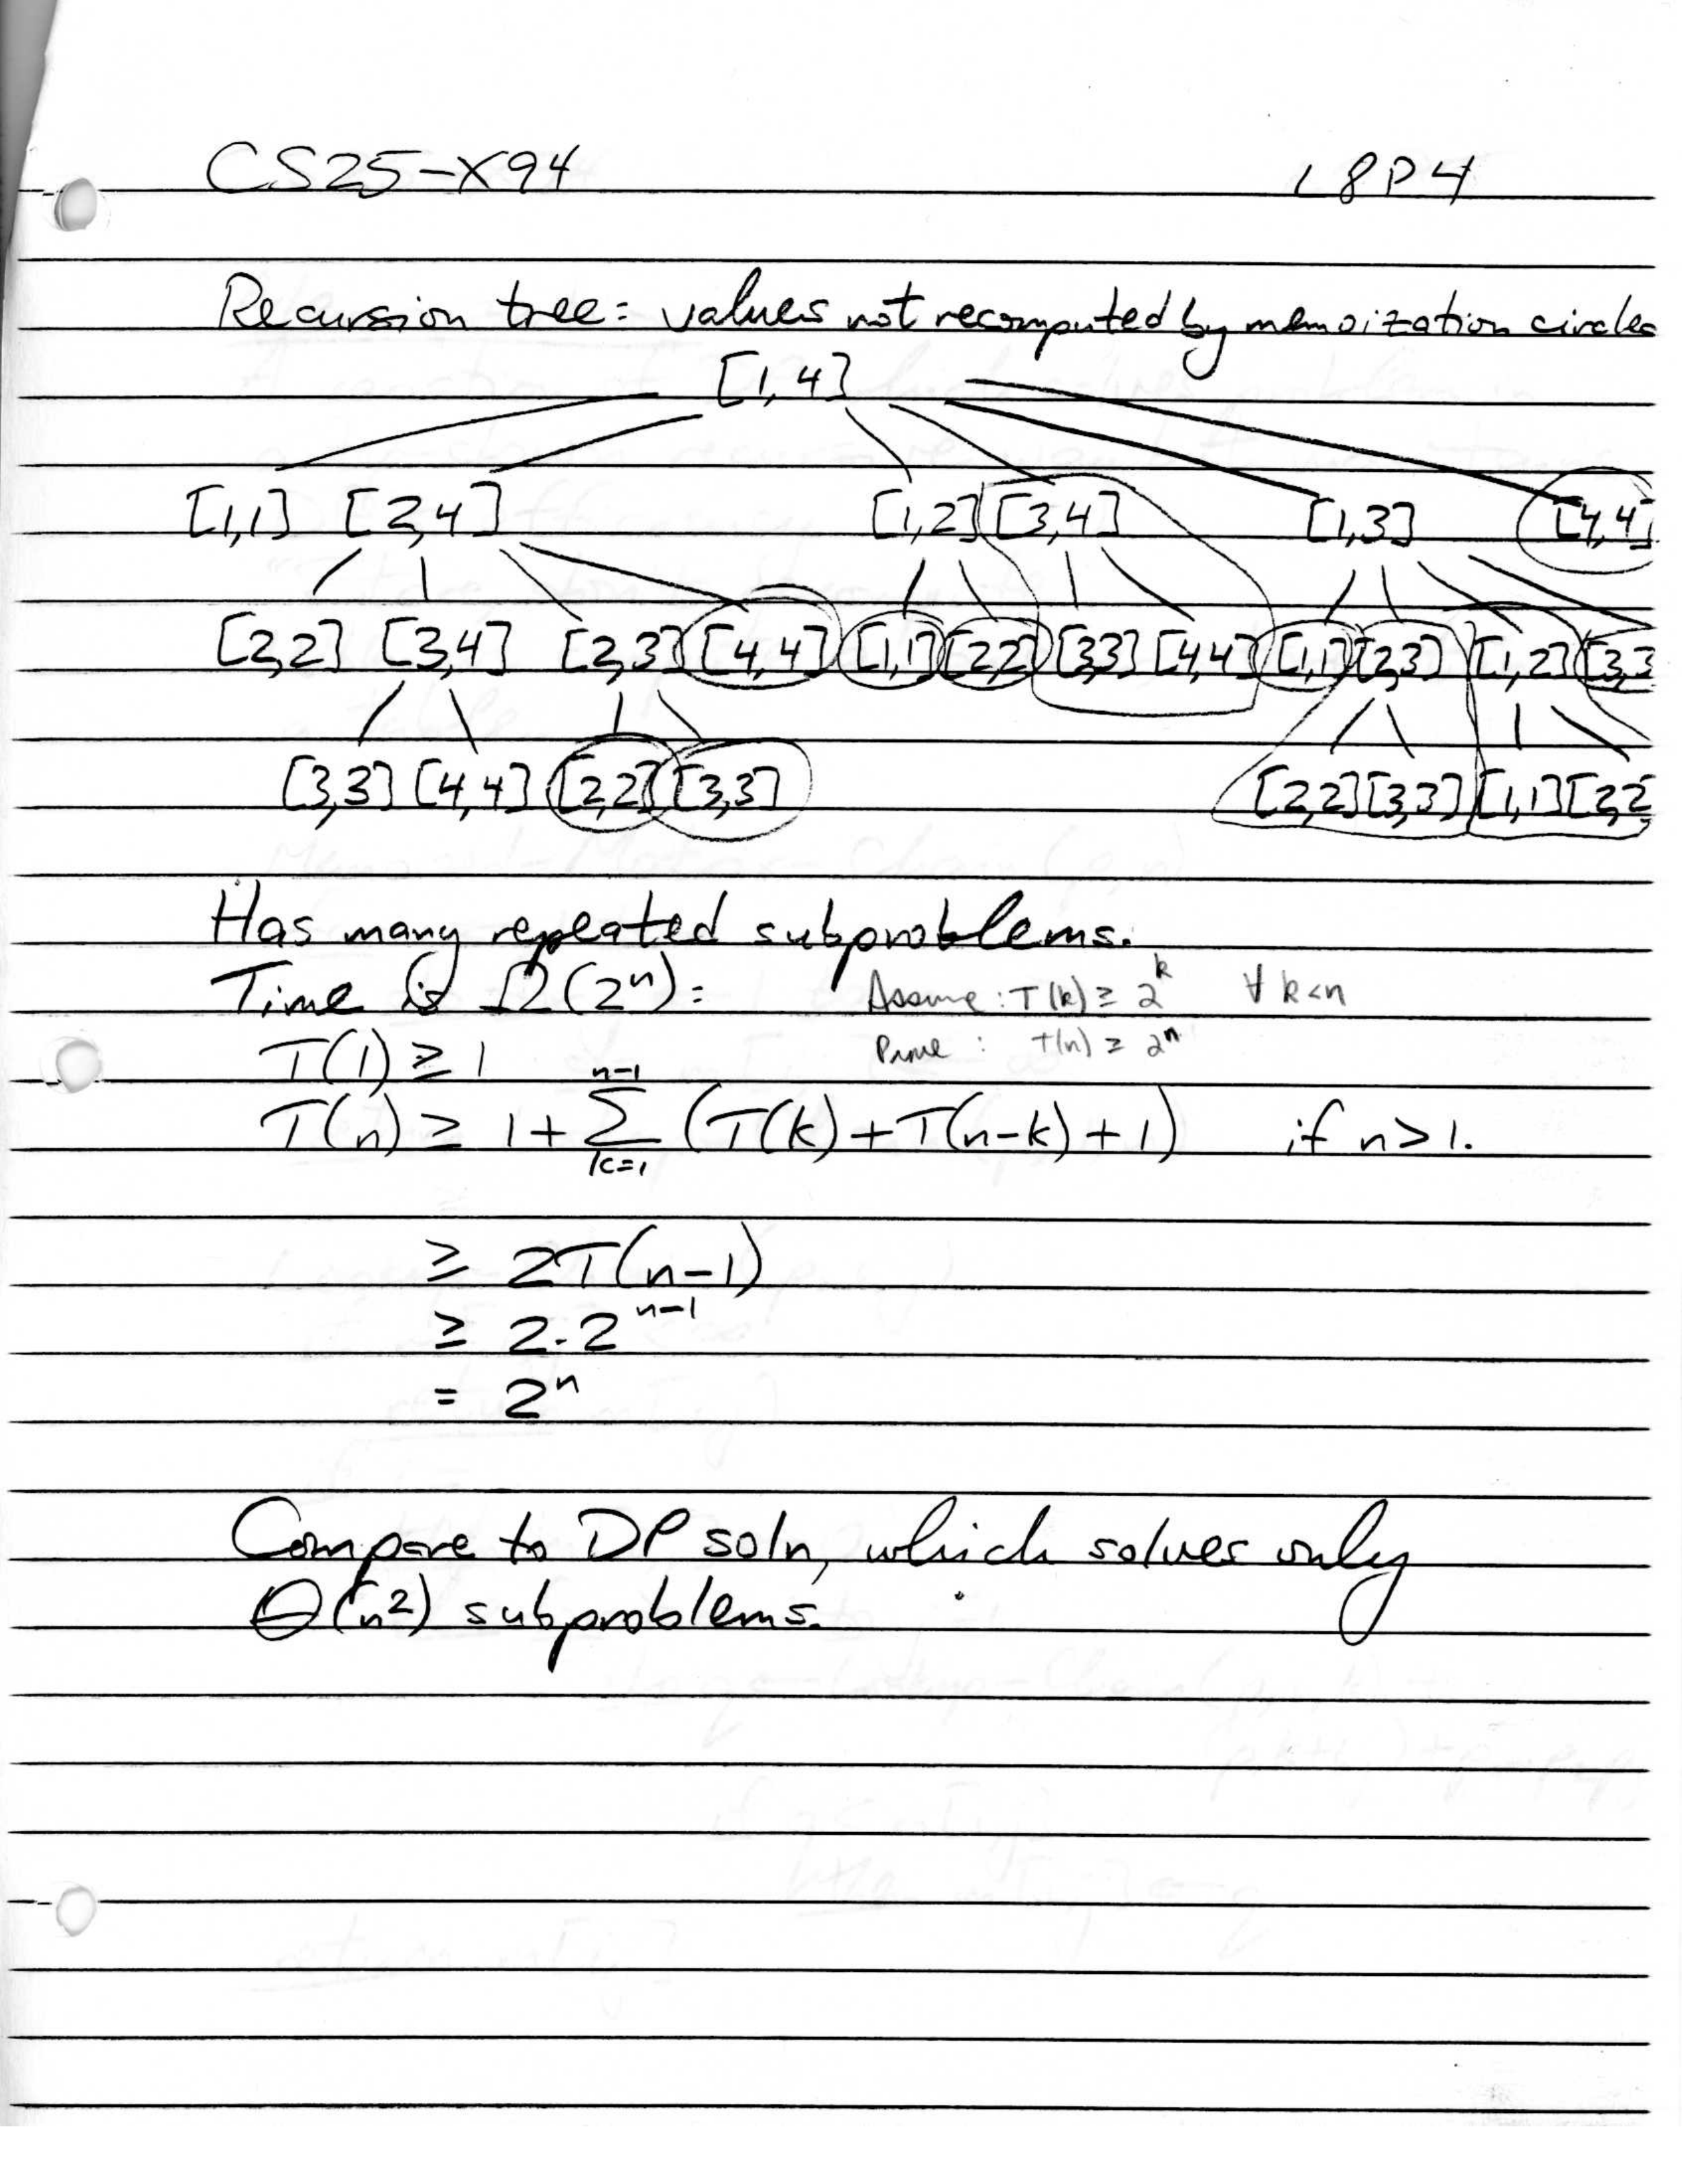 CS25-X94 L8P4
Recursion tree: values not recomputed by memoization circles
[1,4]
[1,1] [2,4] [1,2] [3,4] [1,3] [4,4]
[2,2] [3,4] [2,3] [4,4] [1,1] [2,2] [3,3] [4,4] [1,1] [2,3] [1,2] [3,3
[3,3] [4,4] [2,2] [3,3] [2,2] [3,3] [1,1] [2,2
Has many repeated subproblems.
Time is Ω(2ⁿ): Assume: T(k) ≥ 2^k ∀ k<n
T(1) ≥ 1 Prove: T(n) ≥ 2ⁿ
T(n) ≥ 1 + Σ_{k=1}^{n-1} (T(k) + T(n-k) + 1) if n > 1.
≥ 2T(n-1)
≥ 2·2^{n-1}
= 2ⁿ
Compare to DP soln, which solves only
Θ(n²) subproblems.